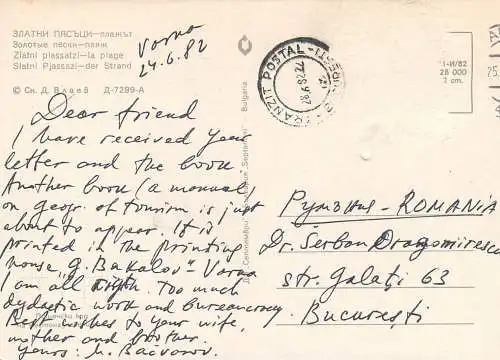 ЗЛАТНИ ПЯСЪЦИ—плажът
Золотые пески—пляж
Zlatni piassatzi—la plage
Slatni Pjassazi—der Strand
© Сн. Д. Влаев Д-7299-А
Varna
24.6.82
Dear friend
I have received your
letter and the book.
Another book (a manual)
on geogr. of tourism is just
about to appear. It is
printed in the printing
house "G. Bakalov" Varna
I am all right. Too much
dydactic work and bureaucracy.
Best wishes to your wife,
mother and brother.
Yours: M. Bacvarov.
Bulgaria
TRANZIT POSTAL
BUCUREȘTI
28.6.82.22
I-II/82
28 000
7 cm.
25.
Румъния - ROMANIA
Dr. Serban Dragomirescu
str. Galați 63
București